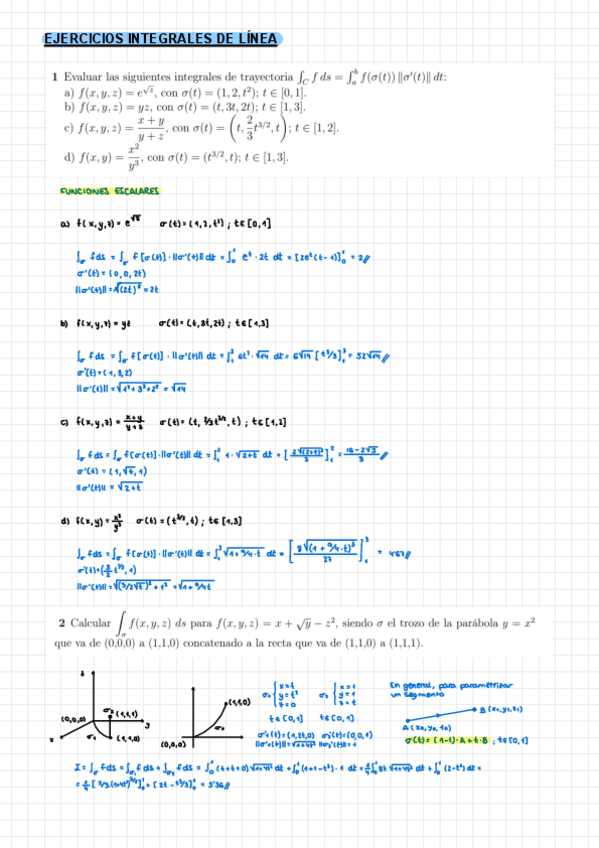 EJERCICIOS INTEGRALES DE LÍNEA
1 Evaluar las siguientes integrales de trayectoria ∫_C f ds = ∫_a^b f(σ(t)) ||σ'(t)|| dt:
a) f(x, y, z) = e^√z, con σ(t) = (1, 2, t²); t ∈ [0, 1].
b) f(x, y, z) = yz, con σ(t) = (t, 3t, 2t); t ∈ [1, 3].
c) f(x, y, z) = (x + y)/(y + z), con σ(t) = (t, 2/3 t^3/2, t); t ∈ [1, 2].
d) f(x, y) = x²/y³, con σ(t) = (t^3/2, t); t ∈ [1, 3].
FUNCIONES ESCALARES
a) f(x,y,z) = e^√z σ(t) = (1,2,t²) ; t ∈ [0,1]
∫_σ f ds = ∫_σ f[σ(t)]·||σ'(t)|| dt = ∫_0^1 e^t · 2t dt = [2e^t(t-1)]_0^1 = 2//
σ'(t) = (0,0,2t)
||σ'(t)|| = √(2t)² = 2t
b) f(x,y,z) = yz σ(t) = (t,3t,2t) ; t ∈ [1,3]
∫_σ f ds = ∫_σ f[σ(t)]·||σ'(t)|| dt = ∫_1^3 6t²·√14 dt = 6√14 [t³/3]_1^3 = 52√14//
σ'(t) = (1,3,2)
||σ'(t)|| = √1²+3²+2² = √14
c) f(x,y,z) = (x+y)/(y+z) σ(t) = (t, 2/3 t^3/2, t) ; t ∈ [1,2]
∫_σ f ds = ∫_σ f[σ(t)]·||σ'(t)|| dt = ∫_1^2 1·√2+t dt = [2√(2+t)³/3]_1^2 = (16-2√3)/3//
σ'(t) = (1,√t,1)
||σ'(t)|| = √2+t
d) f(x,y) = x²/y³ σ(t) = (t^3/2, t) ; t ∈ [1,3]
∫_σ f ds = ∫_σ f[σ(t)]·||σ'(t)|| dt = ∫_1^3 √1+9/4·t dt = [8√(1+9/4·t)³/27]_1^3 =
σ'(t) = (3/2 t^1/2, 1)
||σ'(t)|| = √(3/2√t)²+1² = √1+9/4t
2 Calcular ∫_σ f(x, y, z) ds para f(x, y, z) = x + √y − z², siendo σ el trozo de la parábola y = x²
que va de (0,0,0) a (1,1,0) concatenado a la recta que va de (1,1,0) a (1,1,1).
z
(0,0,0) σ₂ (1,1,1) y
x σ₁ (1,1,0)
(1,1,0)
σ₁
(0,0,0)
σ₁ { x=t y=t² z=0 σ₂ { x=1 y=1 z=t
t ∈ [0,1] t ∈ [0,1]
σ'₁(t) = (1,2t,0) σ'₂(t) = (0,0,1)
||σ'₁(t)|| = √1+4t² ||σ'₂(t)|| = 1
En general, para parametrizar
un segmento
B (x₁,y₁,z₁)
A (x₀,y₀,z₀)
σ(t) = (1-t)·A + t·B ; t ∈ [0,1]
I = ∫_σ f ds = ∫_σ₁ f ds + ∫_σ₂ f ds = ∫_0^1 (t+t+0) √1+4t² dt + ∫_0^1 (1+1-t²)·1 dt = 1/4 ∫_0^1 8t √1+4t² dt + ∫_0^1 (2-t²) dt =
= 1/4 [2/3 (1+4t²)^3/2]_0^1 + [2t - t³/3]_0^1 = 3'36//